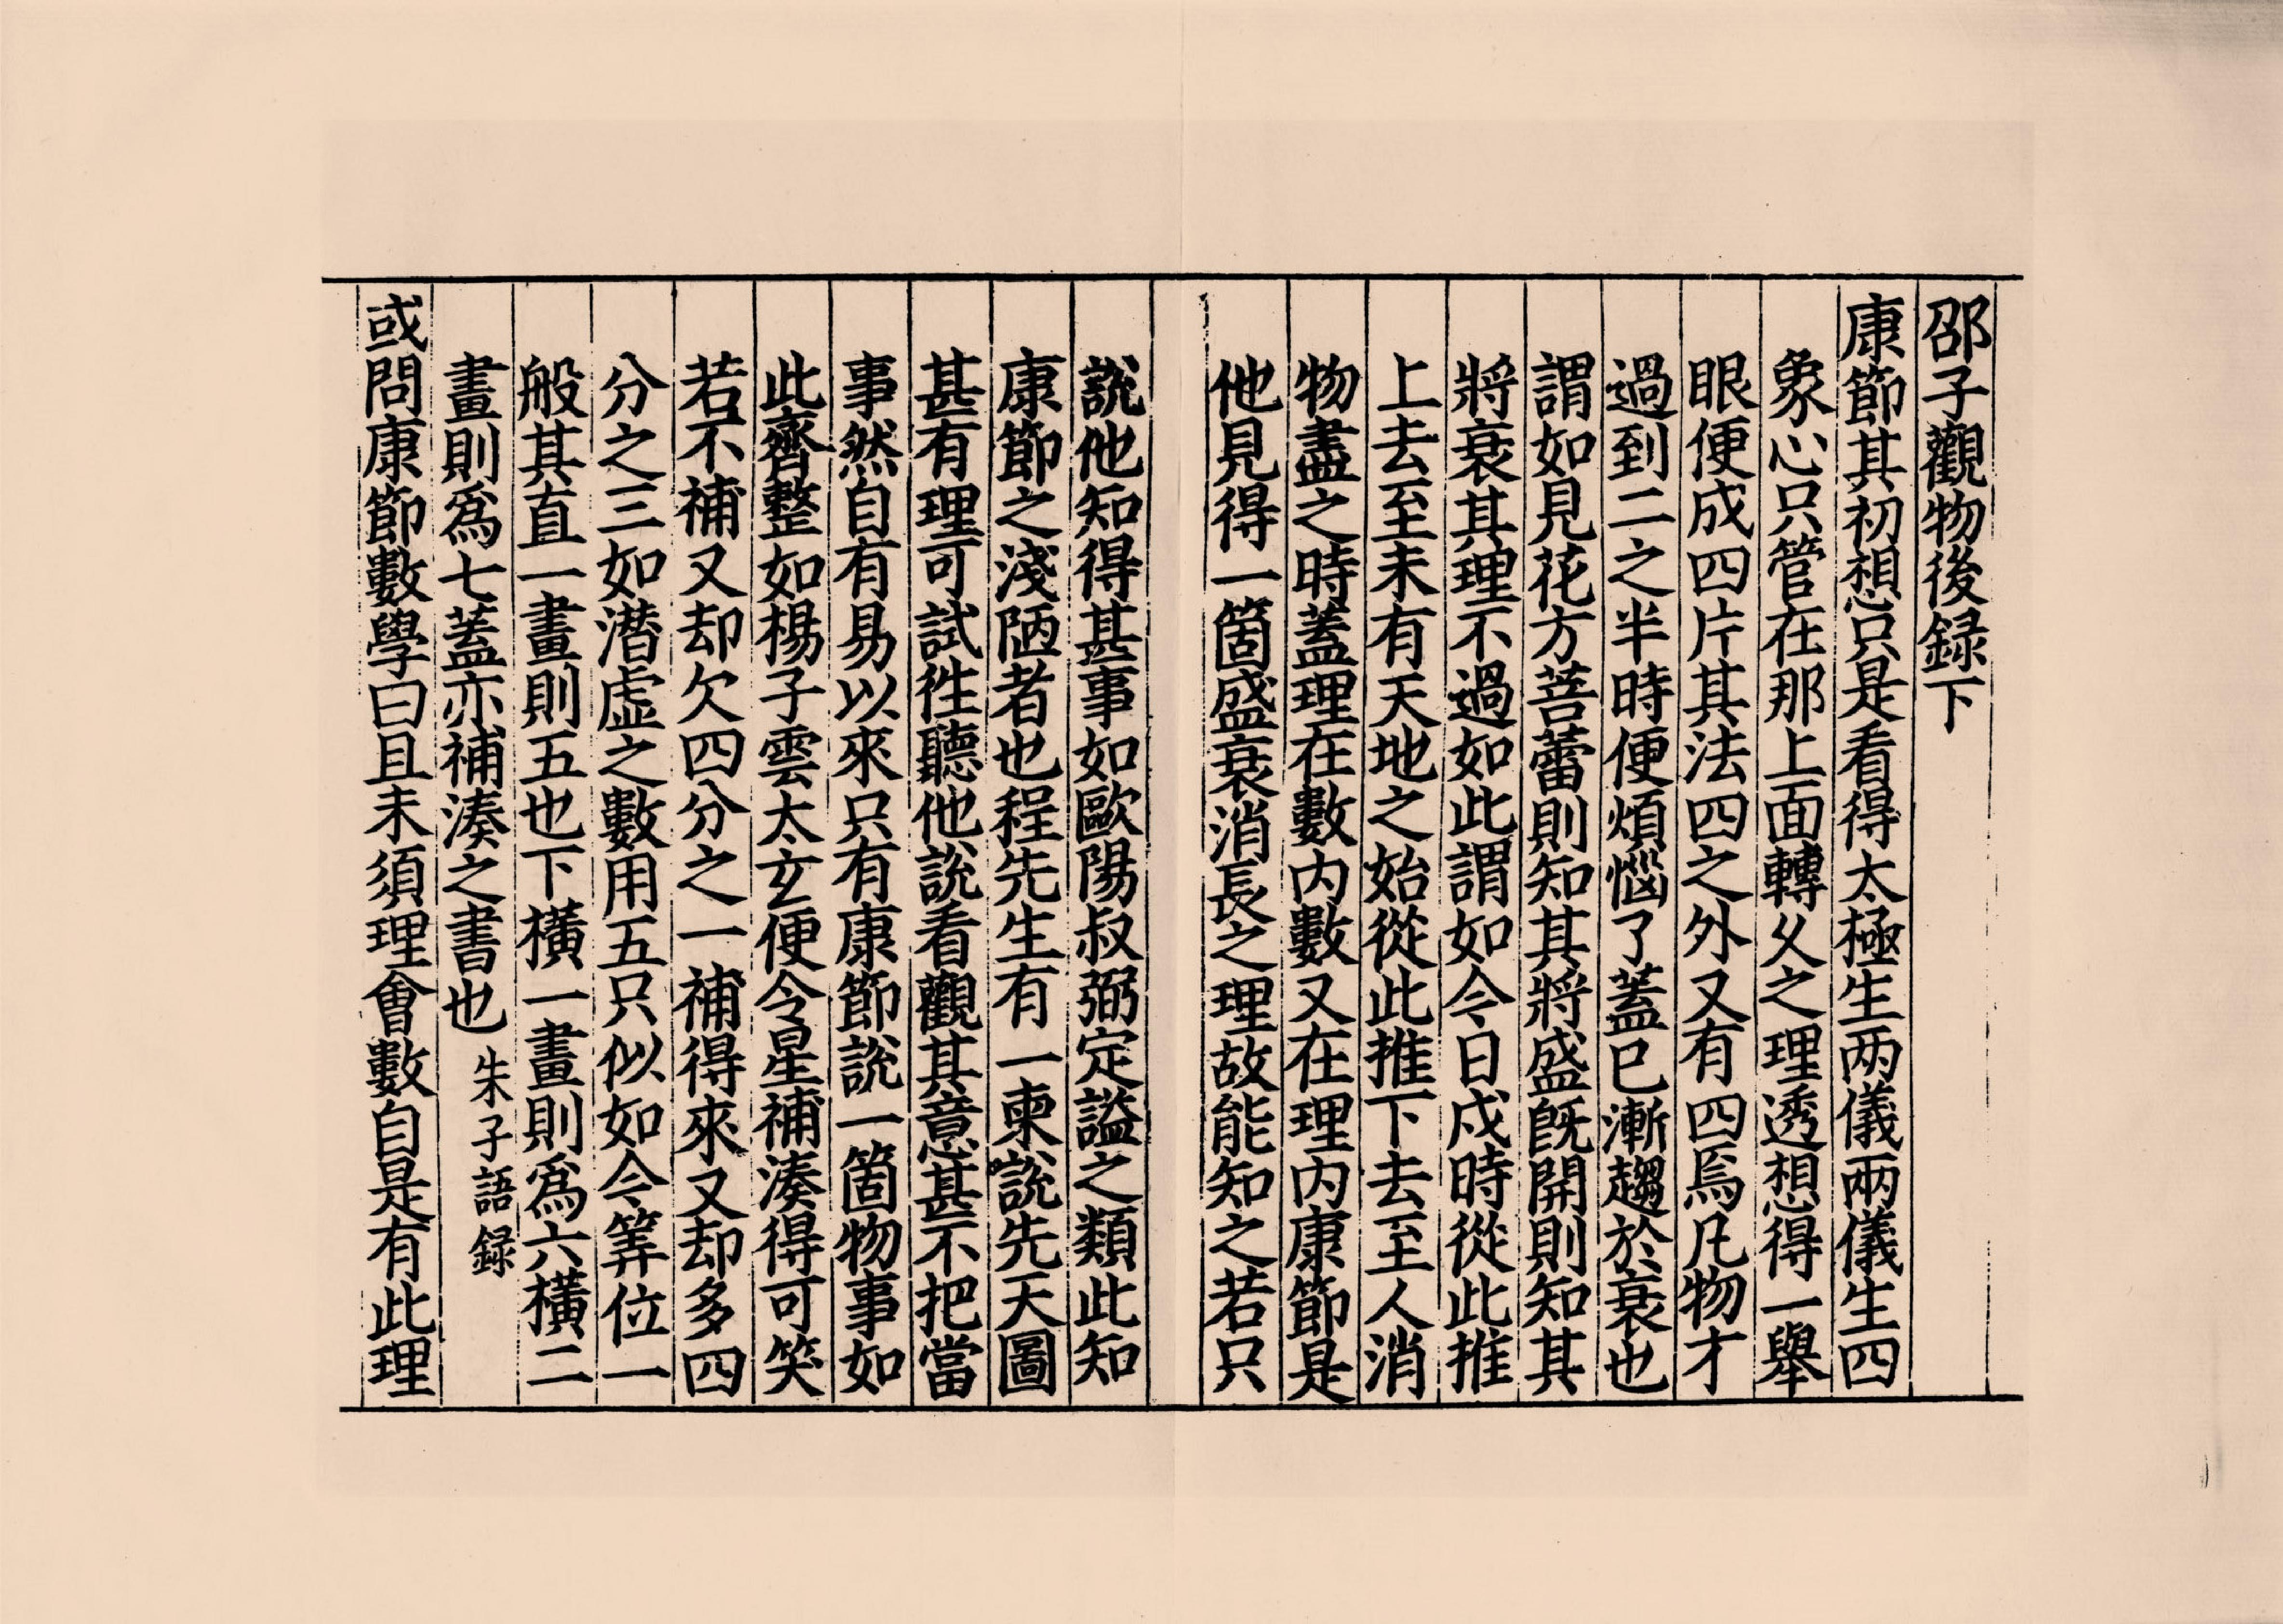 邵子觀物後録下
康節其初想只是看得太極生两儀兩儀生四
象心只管在那上面轉乆之理透想得一舉
眼便成四片其法四之外又有四焉凡物才
過到二之半時便煩惱了蓋巳漸趨於衰也
謂如見花方菩蕾則知其將盛既開則知其
將衰其理不過如此謂如今日戍時從此推
上去至未有天地之始從此推下去至人消
物盡之時蓋理在數内數又在理内康節是
他見得一箇盛衰消長之理故能知之若只
說他知得甚事如歐陽叔弼定諡之類此知
康節之淺陋者也程先生有一柬說先天圖
甚有理可試徃聽他說看觀其意甚不把當
事然自有易以來只有康節說一箇物事如
此齊整如楊子雲太玄便令星補湊得可笑
若不補又却欠四分之一補得來又却多四
分之三如潜虚之數用五只似如今筭位一
般其直一畫則五也下横一畫則爲六横二
畫則爲七蓋亦補湊之書也 朱子語録
或問康節數學曰且未須理會數自是有此理